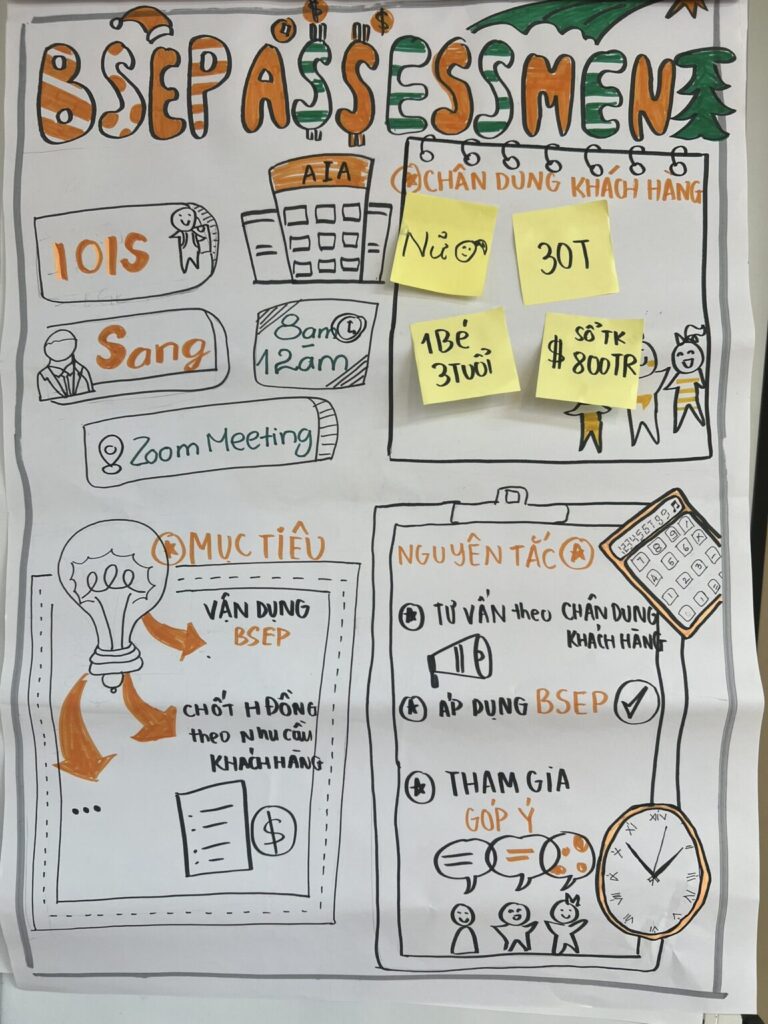 BSEP ASSESSMENT
AIA
IOIS
Sang
8am
12am
Zoom Meeting
CHÂN DUNG KHÁCH HÀNG
Nữ
30T
1 Bé
3 TUỔI
SỔ TK
$ 800TR
MỤC TIÊU
VẬN DỤNG
BSEP
CHỐT HĐỒNG
theo nhu cầu
KHÁCH HÀNG
...
$
NGUYÊN TẮC
TƯ VẤN theo CHÂN DUNG
KHÁCH HÀNG
ÁP DỤNG BSEP
THAM GIA
GÓP Ý